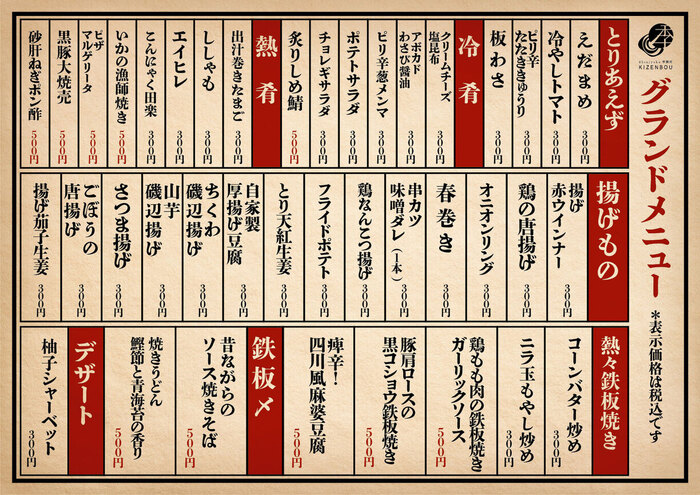 本
KIZENBOU
グランドメニュー
*表示価格は税込てす
とりあえず
えだまめ
300円
冷やしトマト
300円
ピリ辛
たたききゅうり
300円
板わさ
300円
冷肴
クリームチーズ
塩昆布
300円
アボカド
わさび醤油
300円
ピリ辛葱メンマ
300円
ポテトサラダ
300円
チョレギサラダ
300円
炙りしめ鯖
500円
熱肴
出汁巻きたまご
300円
ししゃも
300円
エイヒレ
300円
こんにゃく田楽
300円
いかの漁師焼き
500円
ピザ
マルゲリータ
500円
黒豚大焼売
500円
砂肝ねぎポン酢
500円
揚げもの
揚げ
赤ウインナー
300円
鶏の唐揚げ
300円
オニオンリング
300円
春巻き
300円
串カツ
味噌ダレ(1本)
300円
鶏なんこつ揚げ
300円
フライドポテト
300円
とり天紅生姜
300円
自家製
厚揚げ豆腐
300円
ちくわ
磯辺揚げ
300円
山芋
磯辺揚げ
300円
さつま揚げ
300円
ごぼうの
唐揚げ
300円
揚げ茄子生姜
300円
熱々鉄板焼き
コーンバター炒め
300円
ニラ玉もやし炒め
300円
鶏もも肉の鉄板焼き
ガーリックソース
500円
豚肩ロースの
黒コショウ鉄板焼き
500円
痺辛!
四川風麻婆豆腐
500円
鉄板〆
昔ながらの
ソース焼きそば
500円
焼きうどん
鰹節と青海苔の香り
500円
デザート
柚子シャーベット
300円